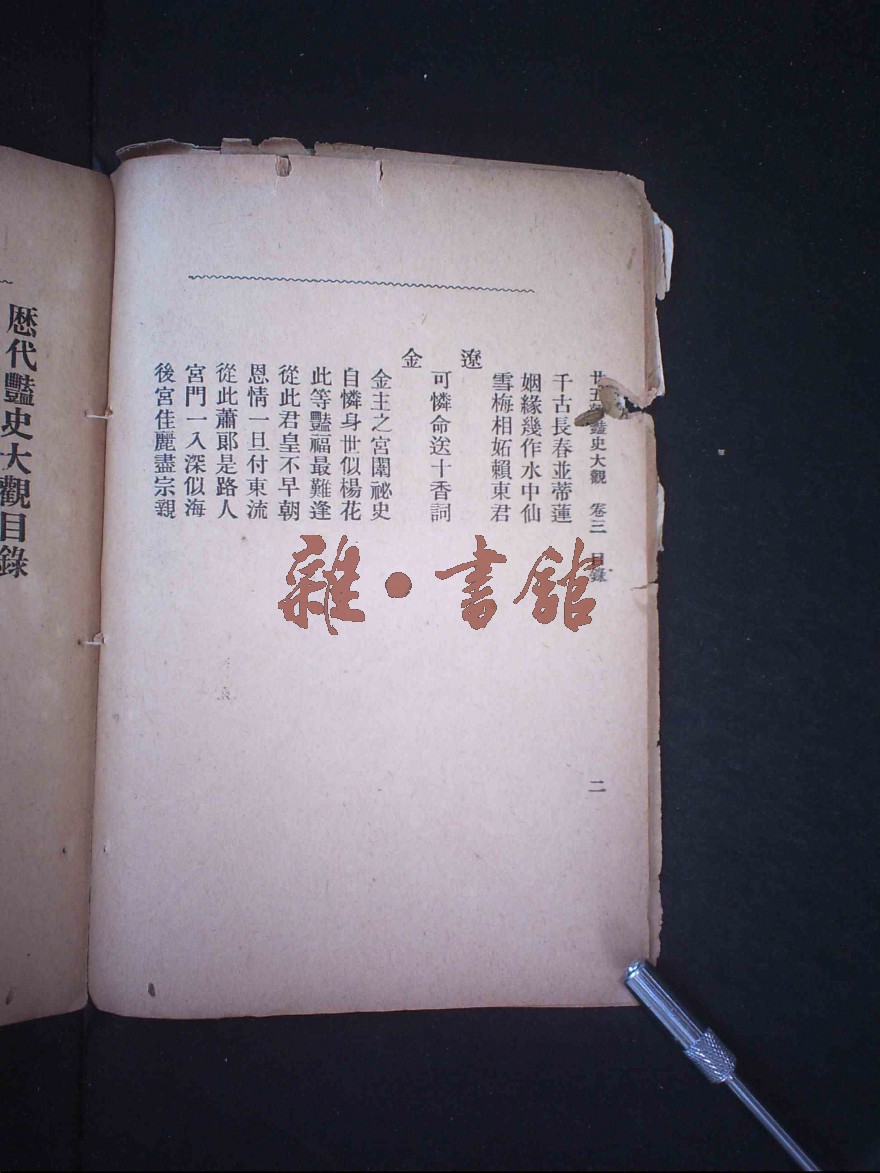 廿五　豔史大觀　卷三　目錄　二
千古長春並蒂蓮
姻緣幾作水中仙
雪梅相妬賴東君
遼
可憐命送十香詞
金
金主之宮闈祕史
自憐身世似楊花
此等豔福最難逢
從此君皇不早朝
恩情一旦付東流
從此蕭郎是路人
宮門一入深似海
後宮佳麗盡宗親
歷代豔史大觀目錄
雜·書館